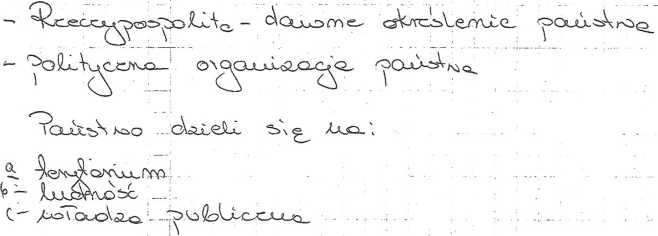 - Rzeczypospolita - dawne określenie państwa
- polityczna organizacja państwa
Państwo dzieli się na:
a terytorium
b - ludność
c - władza publiczna